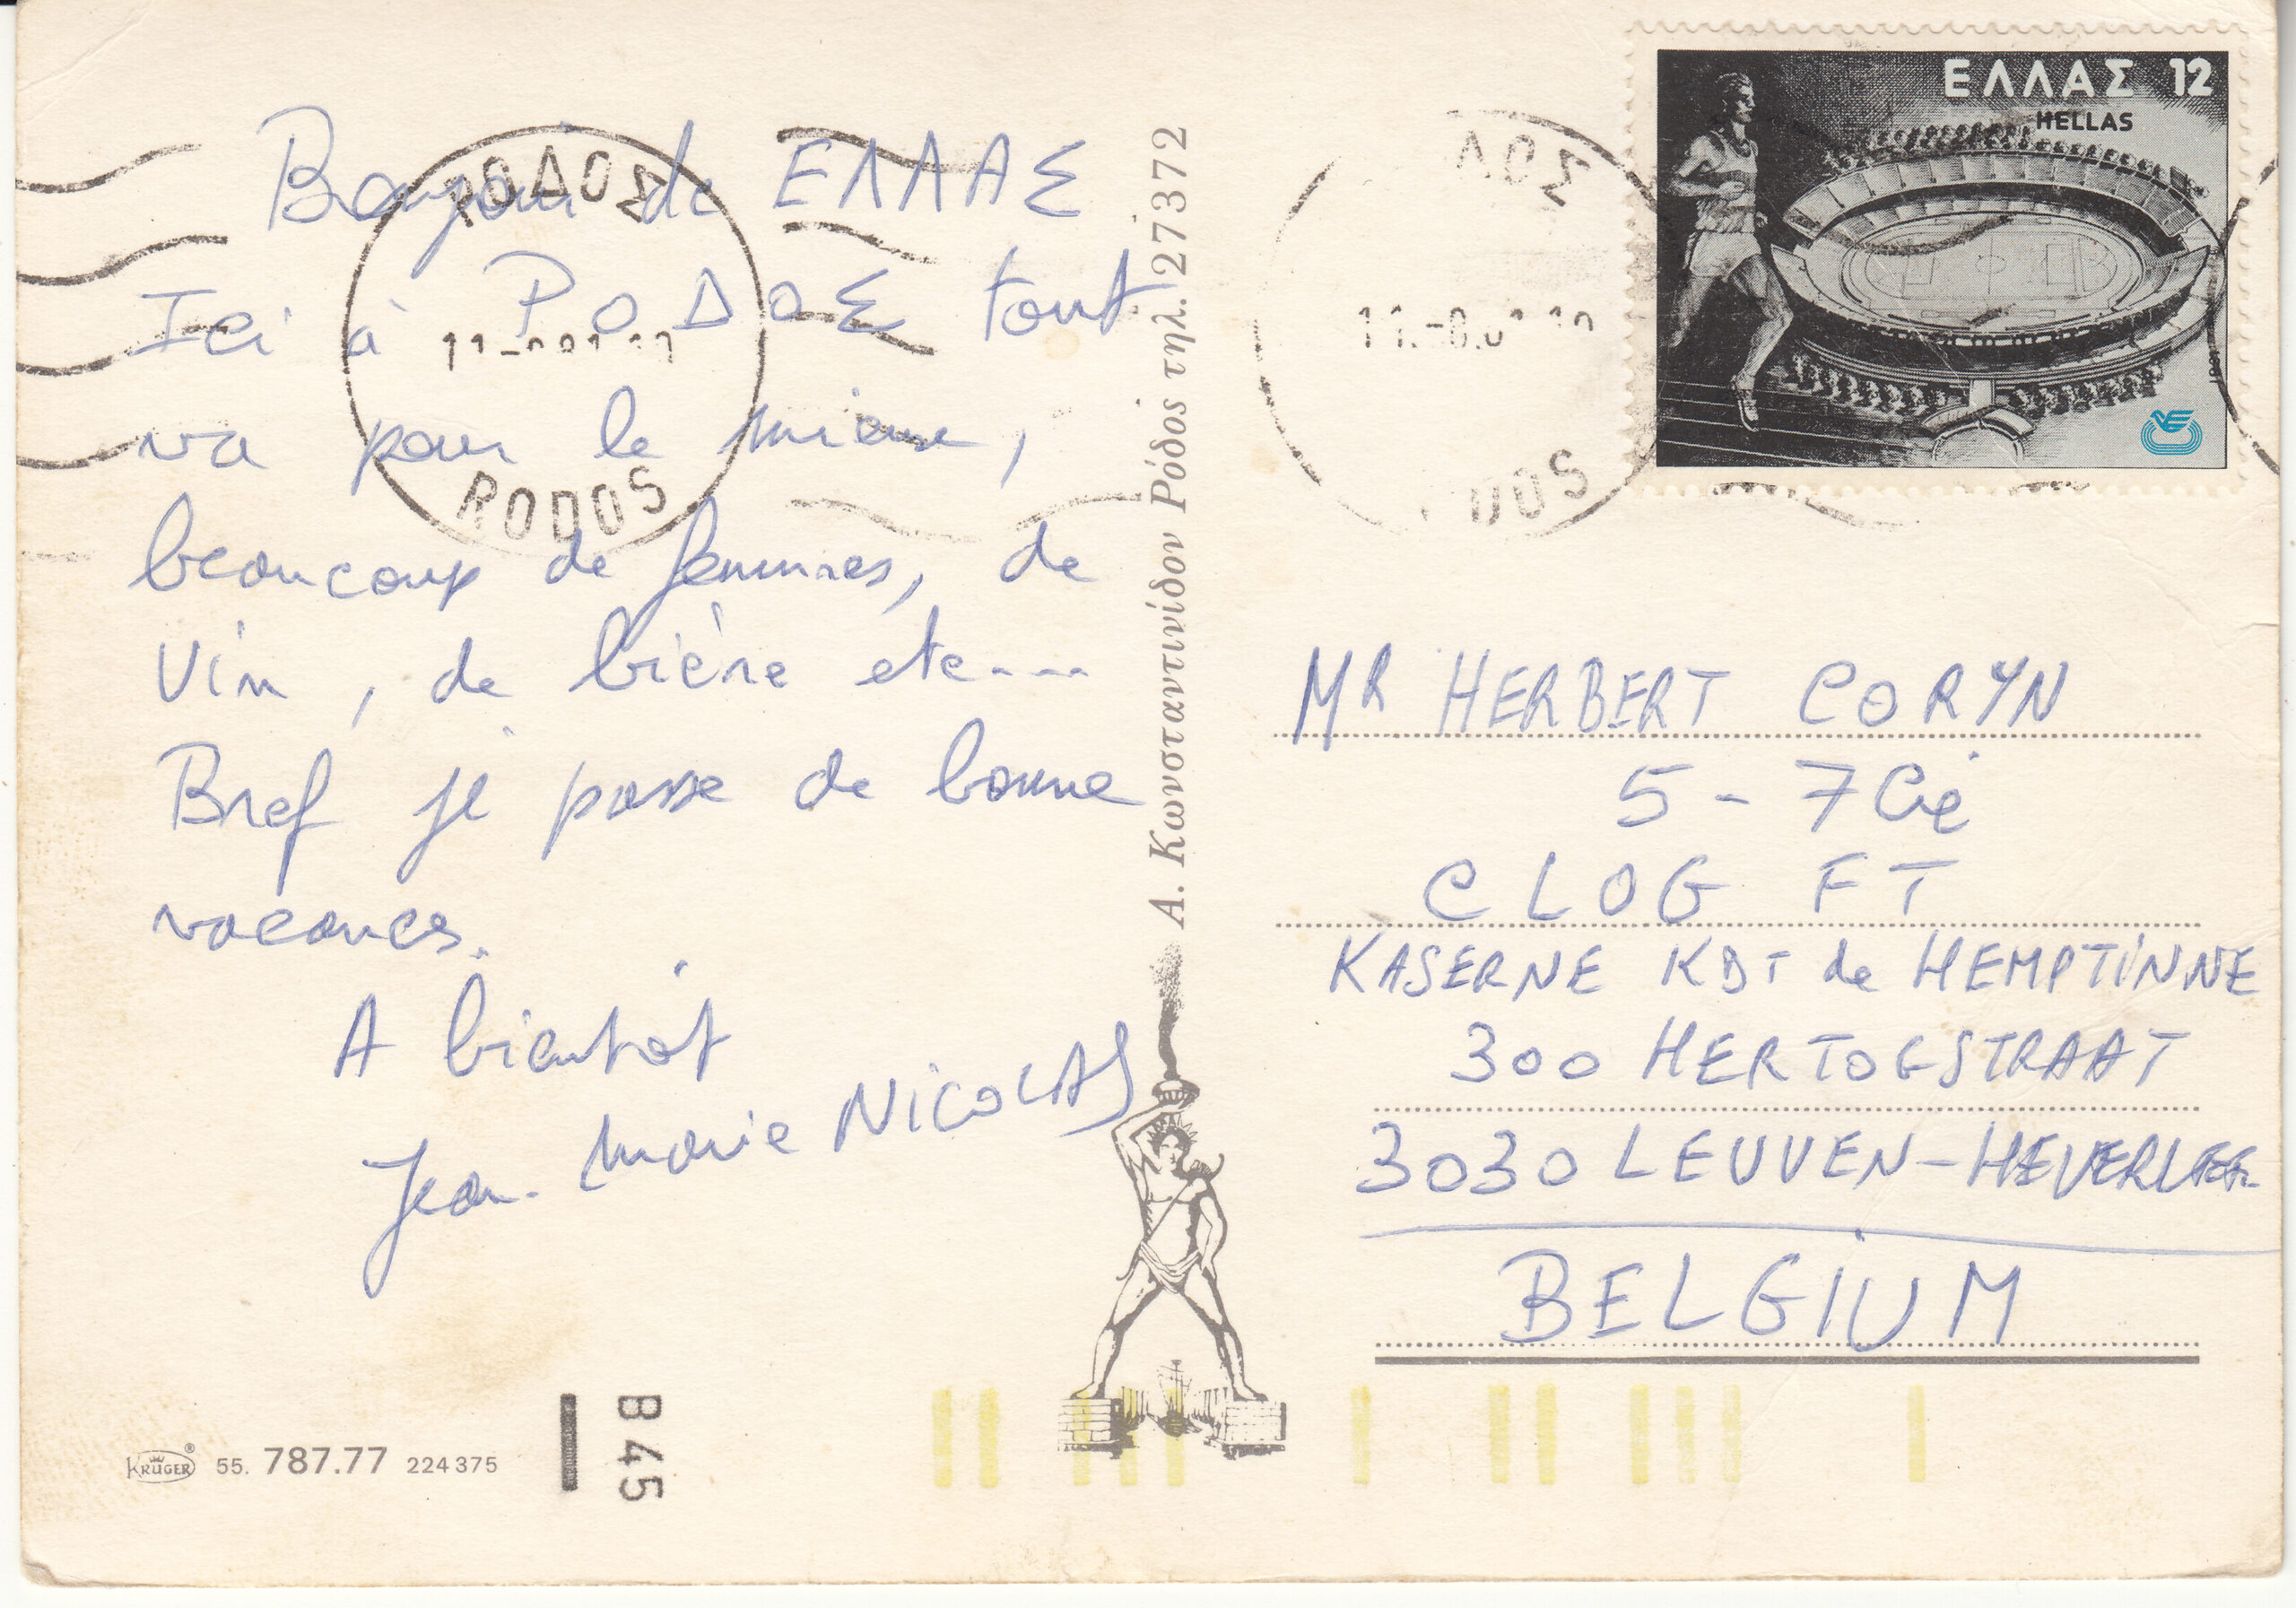 Bonjour de ΕΛΛΑΣ
Ici à ΡΟΔΟΣ tout
va pour le mieux,
beaucoup de femmes, de
vin, de bière etc----
Bref je passe de bonne
vacances.
A bientôt
Jean-Marie NICOLAS
KRÜGER ® 55. 787.77 224 375
B 45
ΡΟΔΟΣ
RODOS
Α. Κωνσταντινίδου Ρόδος τηλ. 27372
ΕΛΛΑΣ 12
HELLAS
MR HERBERT CORYN
5 - 7 Cie
CLOG FT
KASERNE KDT de HEMPTINNE
300 HERTOGSTRAAT
3030 LEUVEN-HEVERLEE
BELGIUM